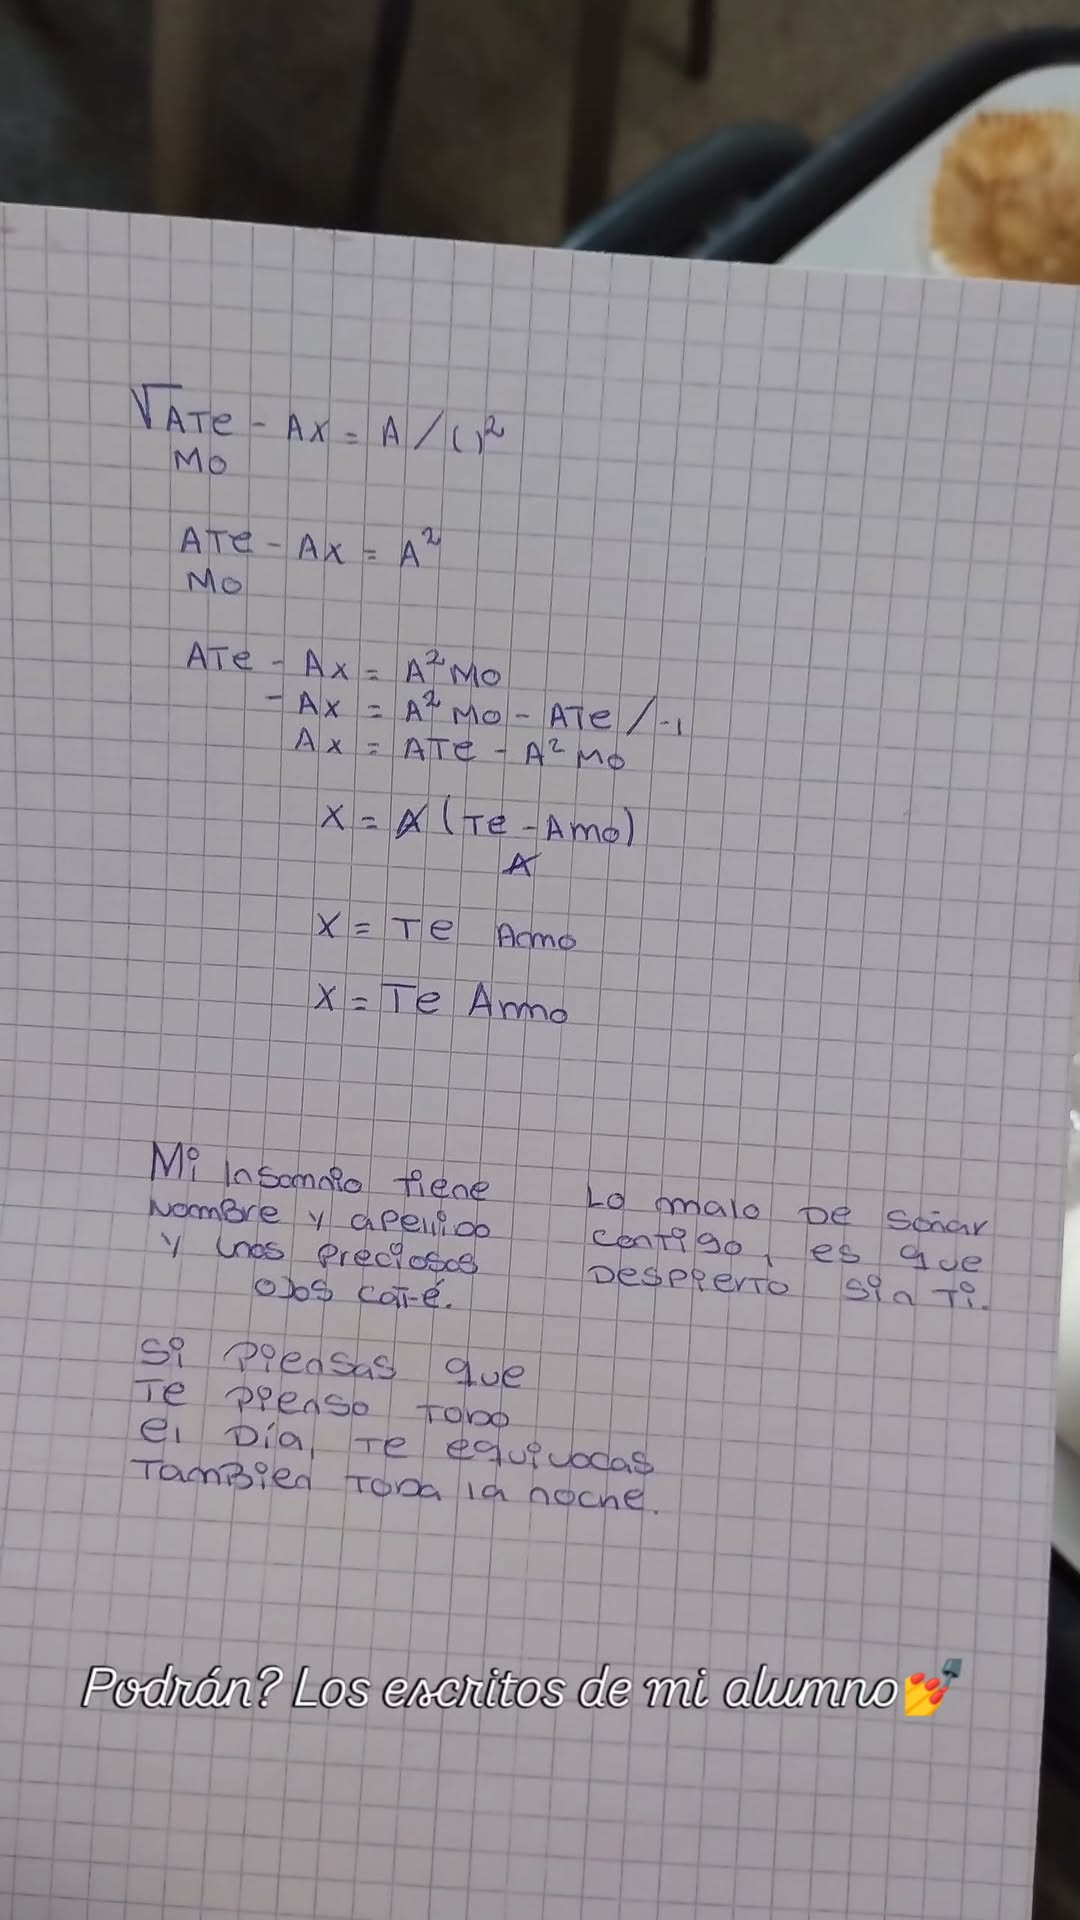 √ATe - Ax = A /( )²
Mo
ATe - Ax = A²
Mo
ATe - Ax = A² Mo
- Ax = A² Mo - ATe / -1
Ax = ATe - A² Mo
X = A (Te - Amo)
A
X = Te Amo
X = Te Amo
Mi insomnio tiene
Nombre y apellido
y unos preciosos
ojos café.
Lo malo De soñar
contigo, es que
Despierto sin ti.
Si piensas que
Te pienso todo
el Día, te equivocas
También toda la noche.
Podrán? Los escritos de mi alumno💅